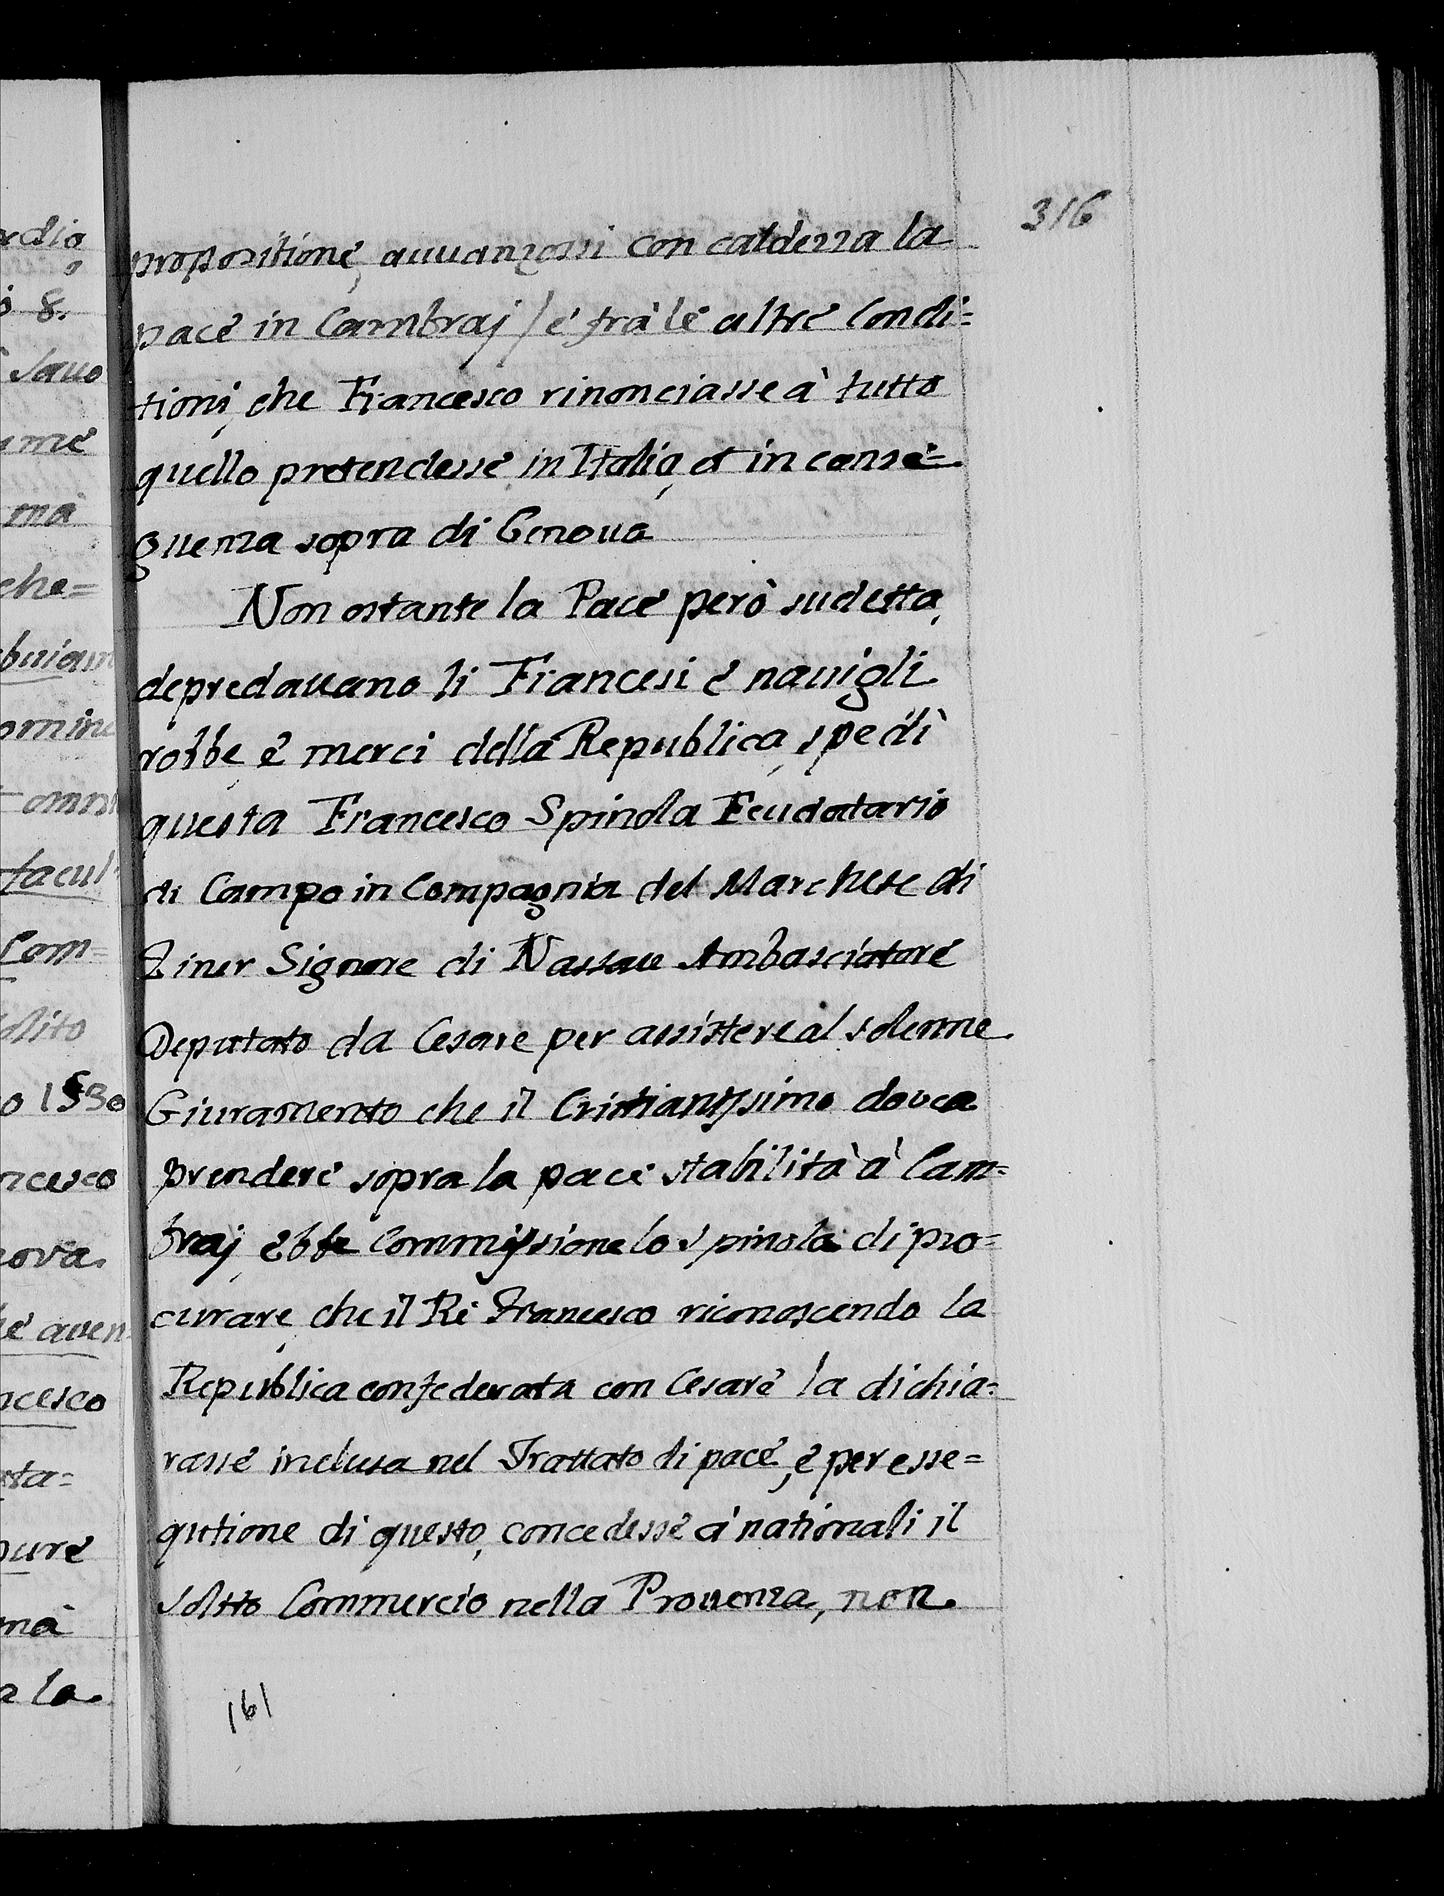 316
propositione, auuanzossi con caldezza la
pace in Cambraj / e frà le altre Condi=
tioni, che Francesco rinonciasse à tutto
quello pretendesse in Italia, et in conse=
guenza sopra di Genoua
Non ostante la Pace però sudetta,
depredauano li Francesi e nauigli
robbe, e merci della Republica, spedì
questa Francesco Spinola Feudatario
di Campo in Compagnia del Marchese di
Signore di Nassau Ambasciatore
Deputato da Cesare per assistere al solenne
Giuramento che il Cristianissimo douea
prendere sopra la pace stabilità à Cam=
braj, ebbe Commissione lo Spinola di pro=
curare, che il Rè Francesco riconoscendo la
Republica confederata con Cesare la dichia=
rasse inclusa nel Trattato di pace, e per esse=
qutione di questo, concedesse à nationali il
solito Commercio nella Prouenza, non
161